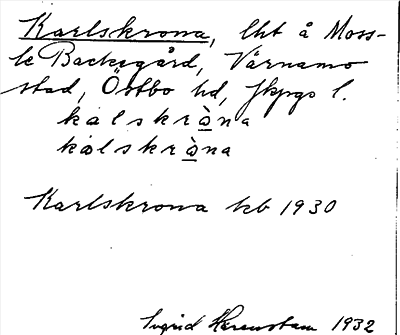 Karlskrona, lht å Moss-
le Backegård, Värnamo
stad, Östbo hd, Jkpgs l.
kalskrȧ̀na
kalskrȧ̀na
Karlskrona kb 1930
Sigrid Herenstam 1932